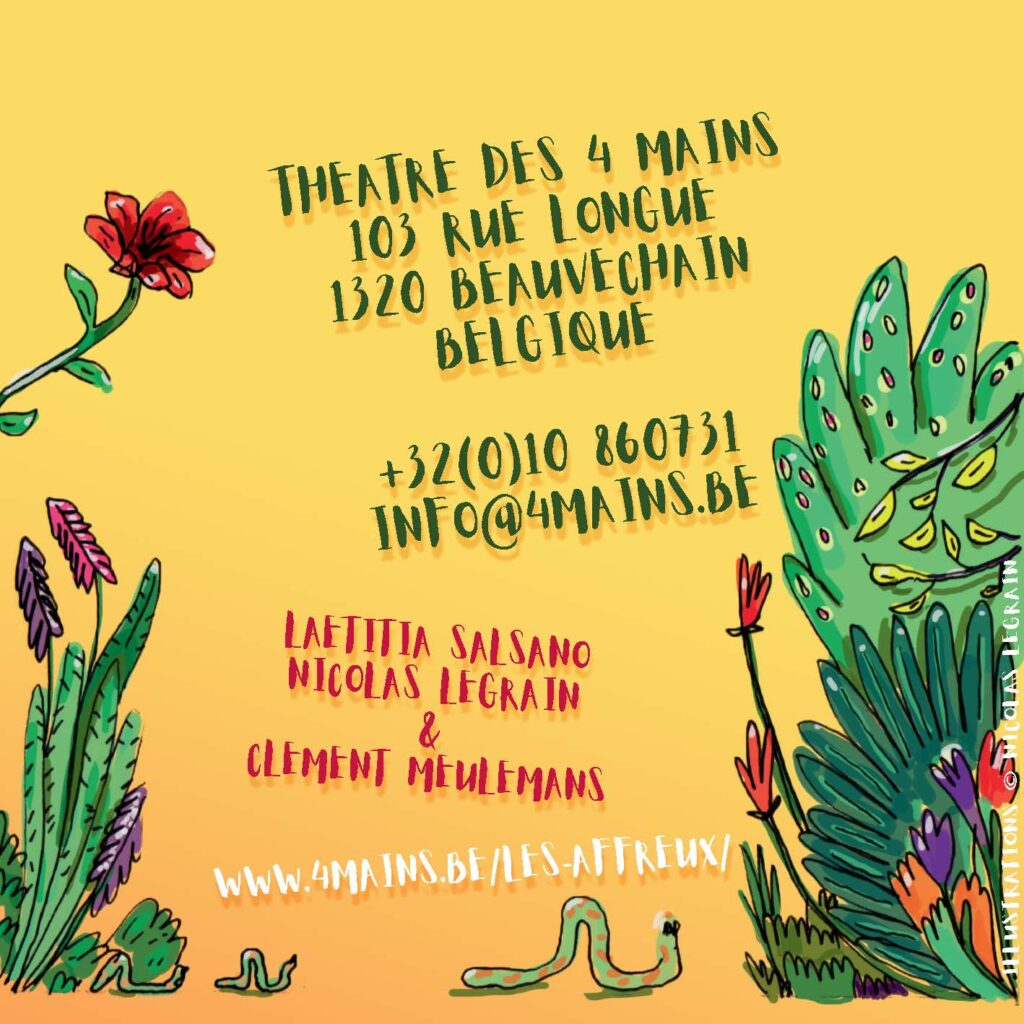 THEATRE DES 4 MAINS
103 RUE LONGUE
1320 BEAUVECHAIN
BELGIQUE
+32(0)10 860731
INFO@4MAINS.BE
LAETITIA SALSANO
NICOLAS LEGRAIN
&
CLEMENT MEULEMANS
WWW.4MAINS.BE/LES-AFFREUX/
ILLUSTRATIONS © NICOLAS LEGRAIN